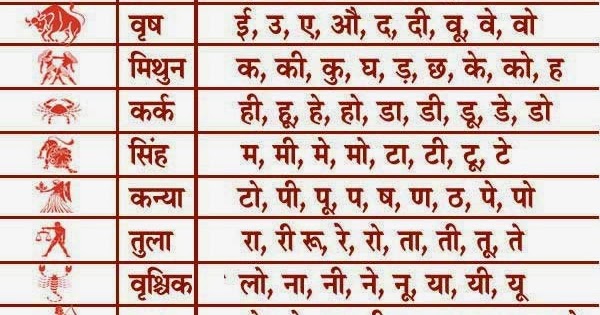 वृष ई, उ, ए, औ, द, दी, वू, वे, वो
मिथुन क, की, कु, घ, ड़, छ, के, को, ह
कर्क ही, हू, हे, हो, डा, डी, डू, डे, डो
सिंह म, मी, मे, मो, टा, टी, टू, टे
कन्या टो, पी, पू, प, ष, ण, ठ, पे, पो
तुला रा, री रू, रे, रो, ता, ती, तू, ते
वृश्चिक लो, ना, नी, ने, नू, या, यी, यू